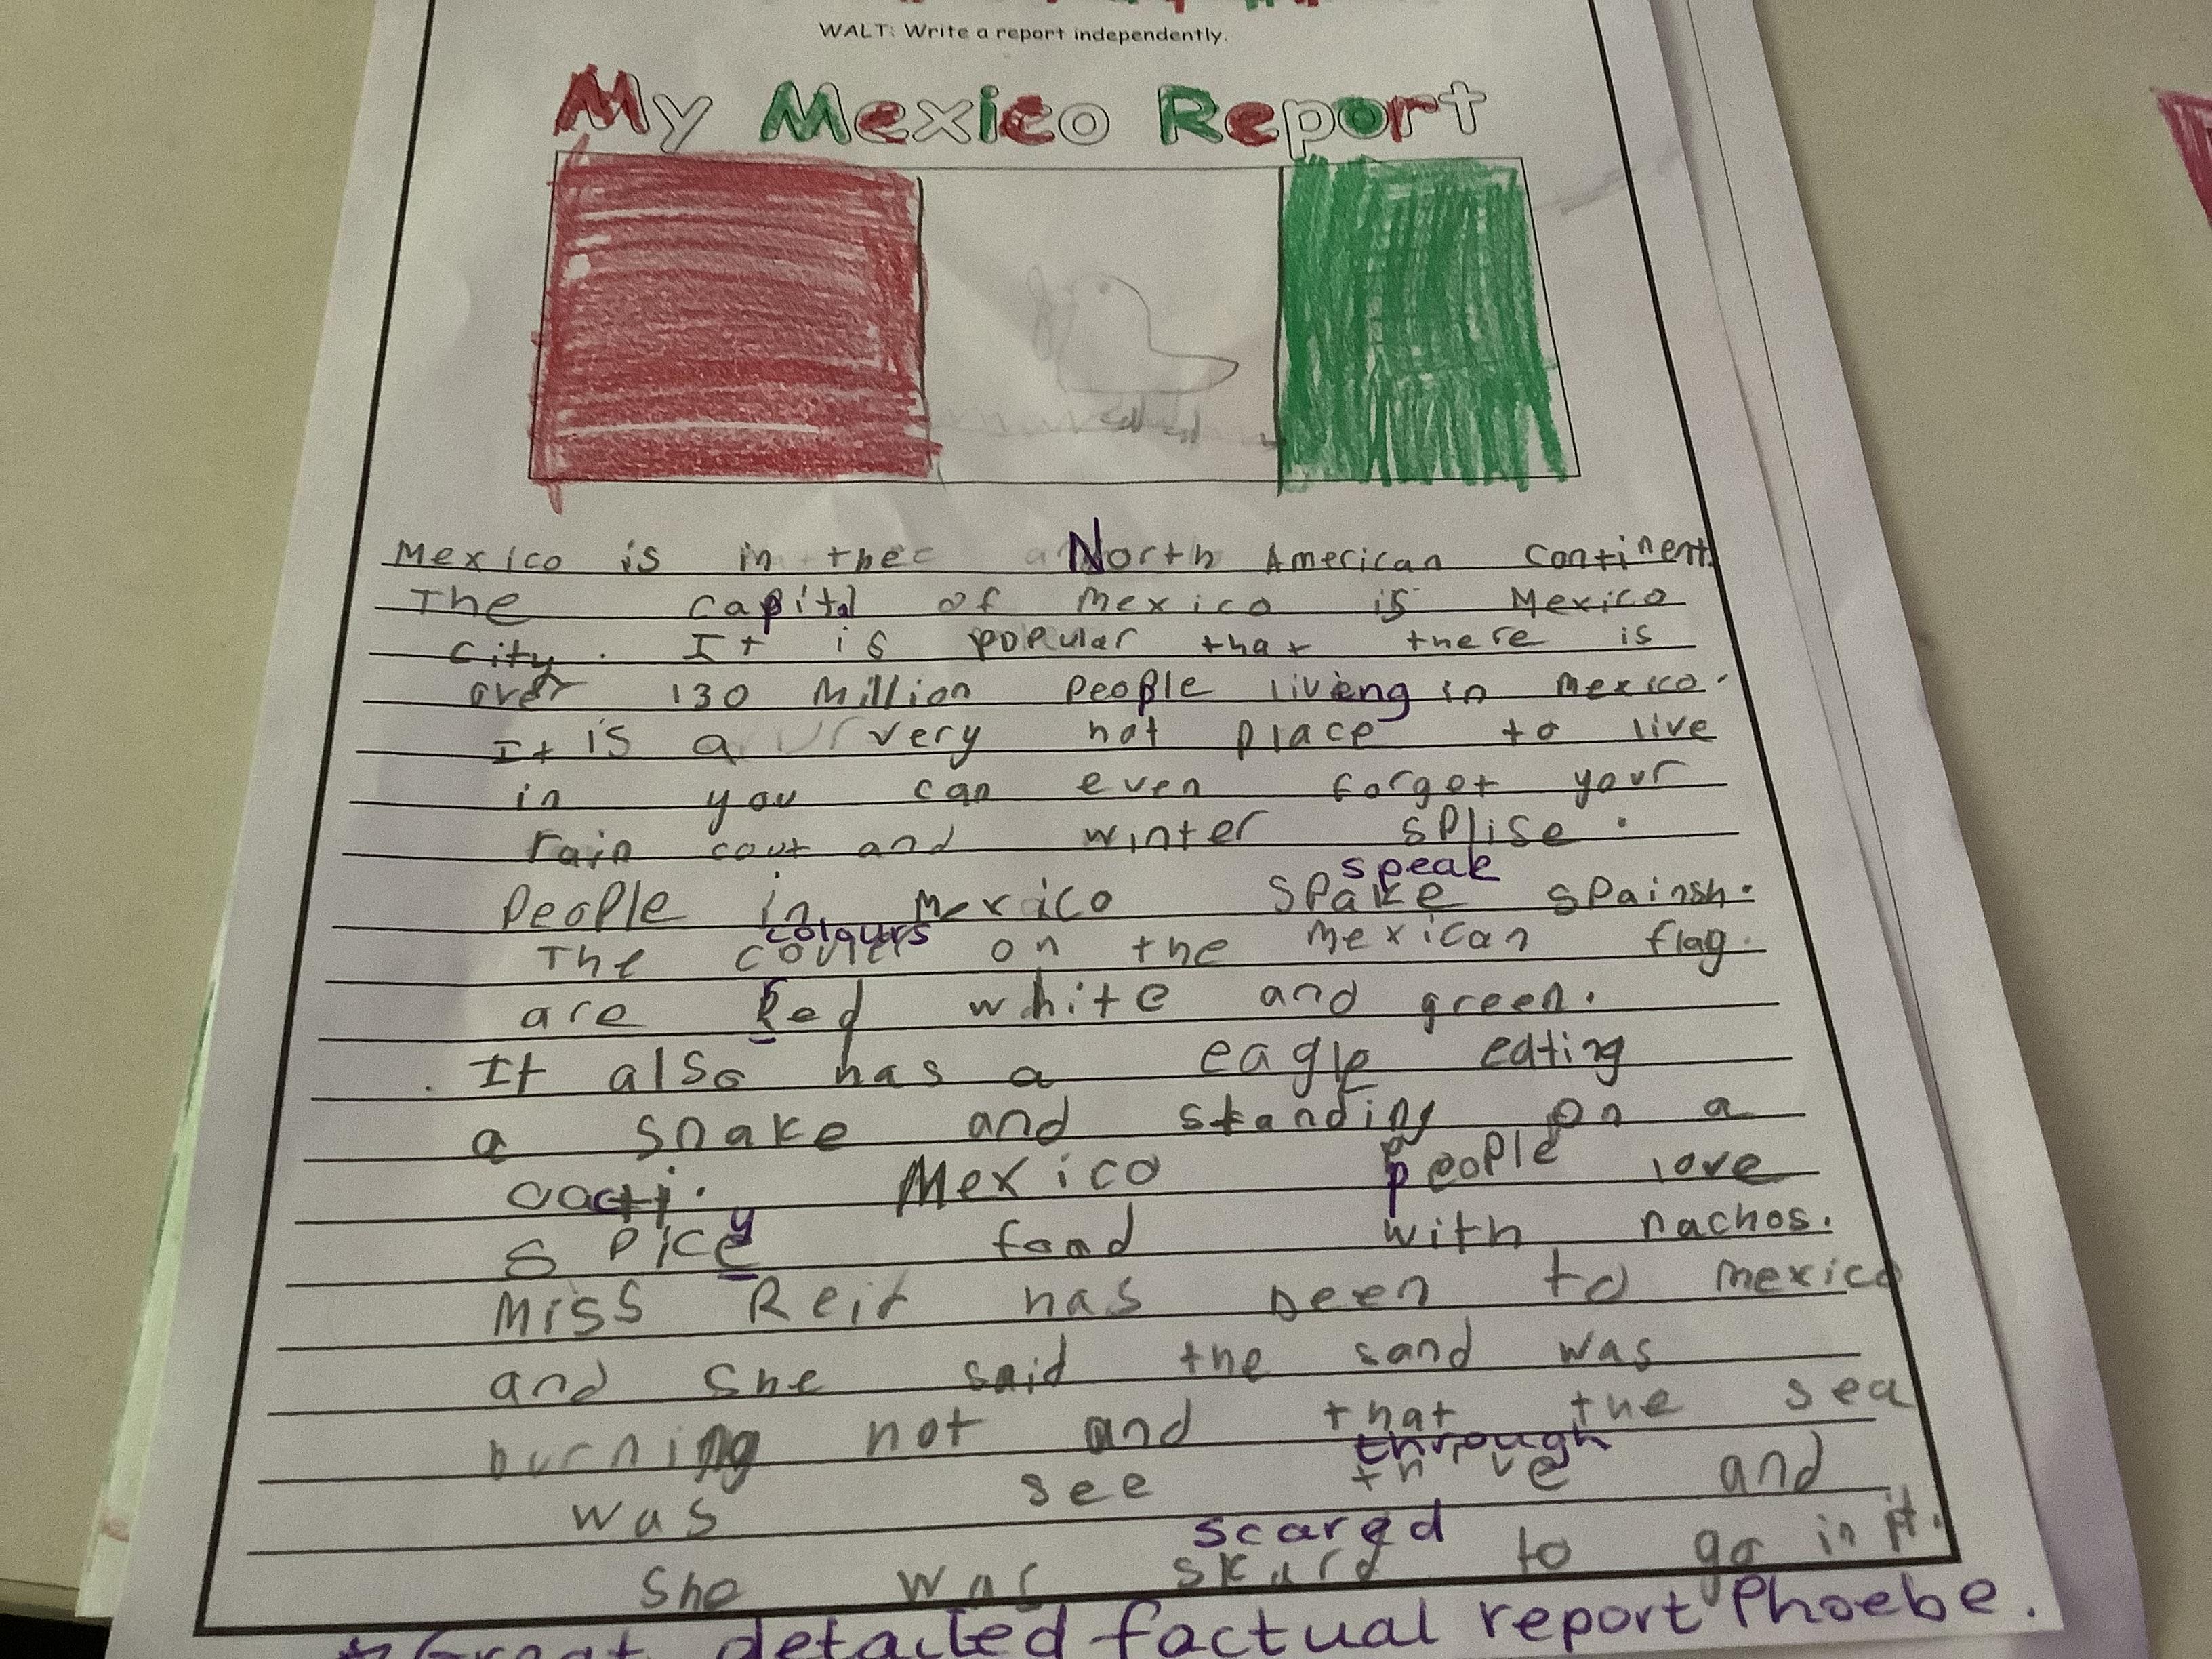 WALT: Write a report independently.
My Mexico Report
Mexico is in the North American continent.
The capital of mexico is Mexico
city. It is popular that there is
over 130 million people living in mexico.
It is a very hot place to live
in you can even forget your
rain cout and winter splise.
speak
People in Mexico spake spainsh.
colours
The couler on the mexican flag.
are Red white and green.
It also has a eagle eating
a snake and standing on a
cacti. Mexico people love
y
spice food with nachos.
Miss Reit has been to mexico
and she said the sand was
burning hot and that the sea
through
was see and
scared
She was skard to go in it.
Great detailed factual report Phoebe.